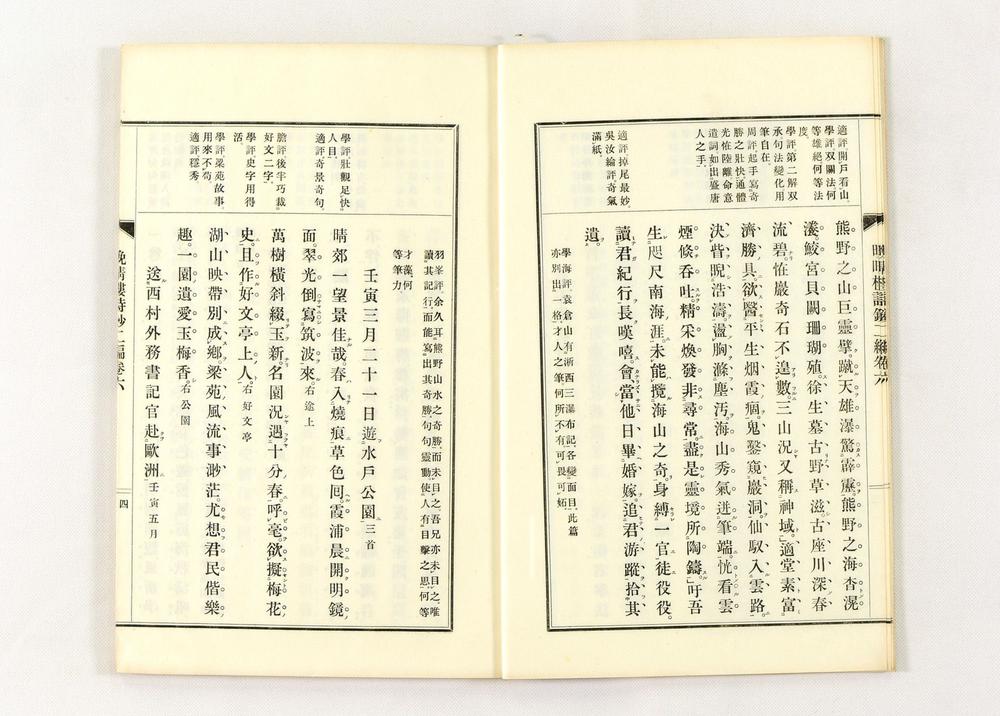 適評開戶看山
學評双關法何
等雄絕何等法
度
學評第二解双
承句法變化用
筆自在
周評起手寫奇
勝之壯快通體
光怪陸離命意
遣詞如出盛唐
人之手
適評掉尾最妙
吳汝綸評奇氣
滿紙
熊野之山巨靈擘蹴天雄瀑驚霹靂熊野之海杳滉
瀁鮫宮貝闕珊瑚殖徐生墓古野草滋古座川深春
流碧怪巖奇石不遑數三山況又稱神域適堂素富
濟勝具欲醫平生烟霞痼鬼鑿窺巖洞仙馭入雲路
決眥睨浩濤盪胸滌塵汚海山秀氣迸筆端恍看雲
煙倏吞吐精采煥發非尋常盡是靈境所陶鑄吁吾
生咫尺南海涯未能攬海山之奇身縛一官徒役役
讀君紀行長嘆嘻會當他日畢婚嫁追君游蹤拾其
遺
學海評袁倉山有浙西三瀑布記各變面目此篇
亦別出一格才人之筆何所不有可畏可妬
學評壯觀足快
人目
適評奇景奇句
膽評後半巧裁
好文二字
學評史字用得
活
學評梁苑故事
用來不苟
適評穩秀
羽峯評余久耳熊野山水之奇勝而未目之吾兄亦未目之唯
讀其記行而能寫出其奇勝句句靈動使人有目擊之思何等
才藻何
等筆力
壬寅三月二十一日遊水戶公園三首
晴郊一望景佳哉春入燒痕草色回霞浦晨開明鏡
面翠光倒寫筑波來右途上
萬樹橫斜綴玉新名園況遇十分春呼毫欲擬梅花
史且作好文亭上人右好文亭
湖山映帶別成鄉梁苑風流事渺茫尤想君民偕樂
趣一園遺愛玉梅香右公園
送西村外務書記官赴歐洲壬寅五月
晚晴樓詩鈔二編卷六
四